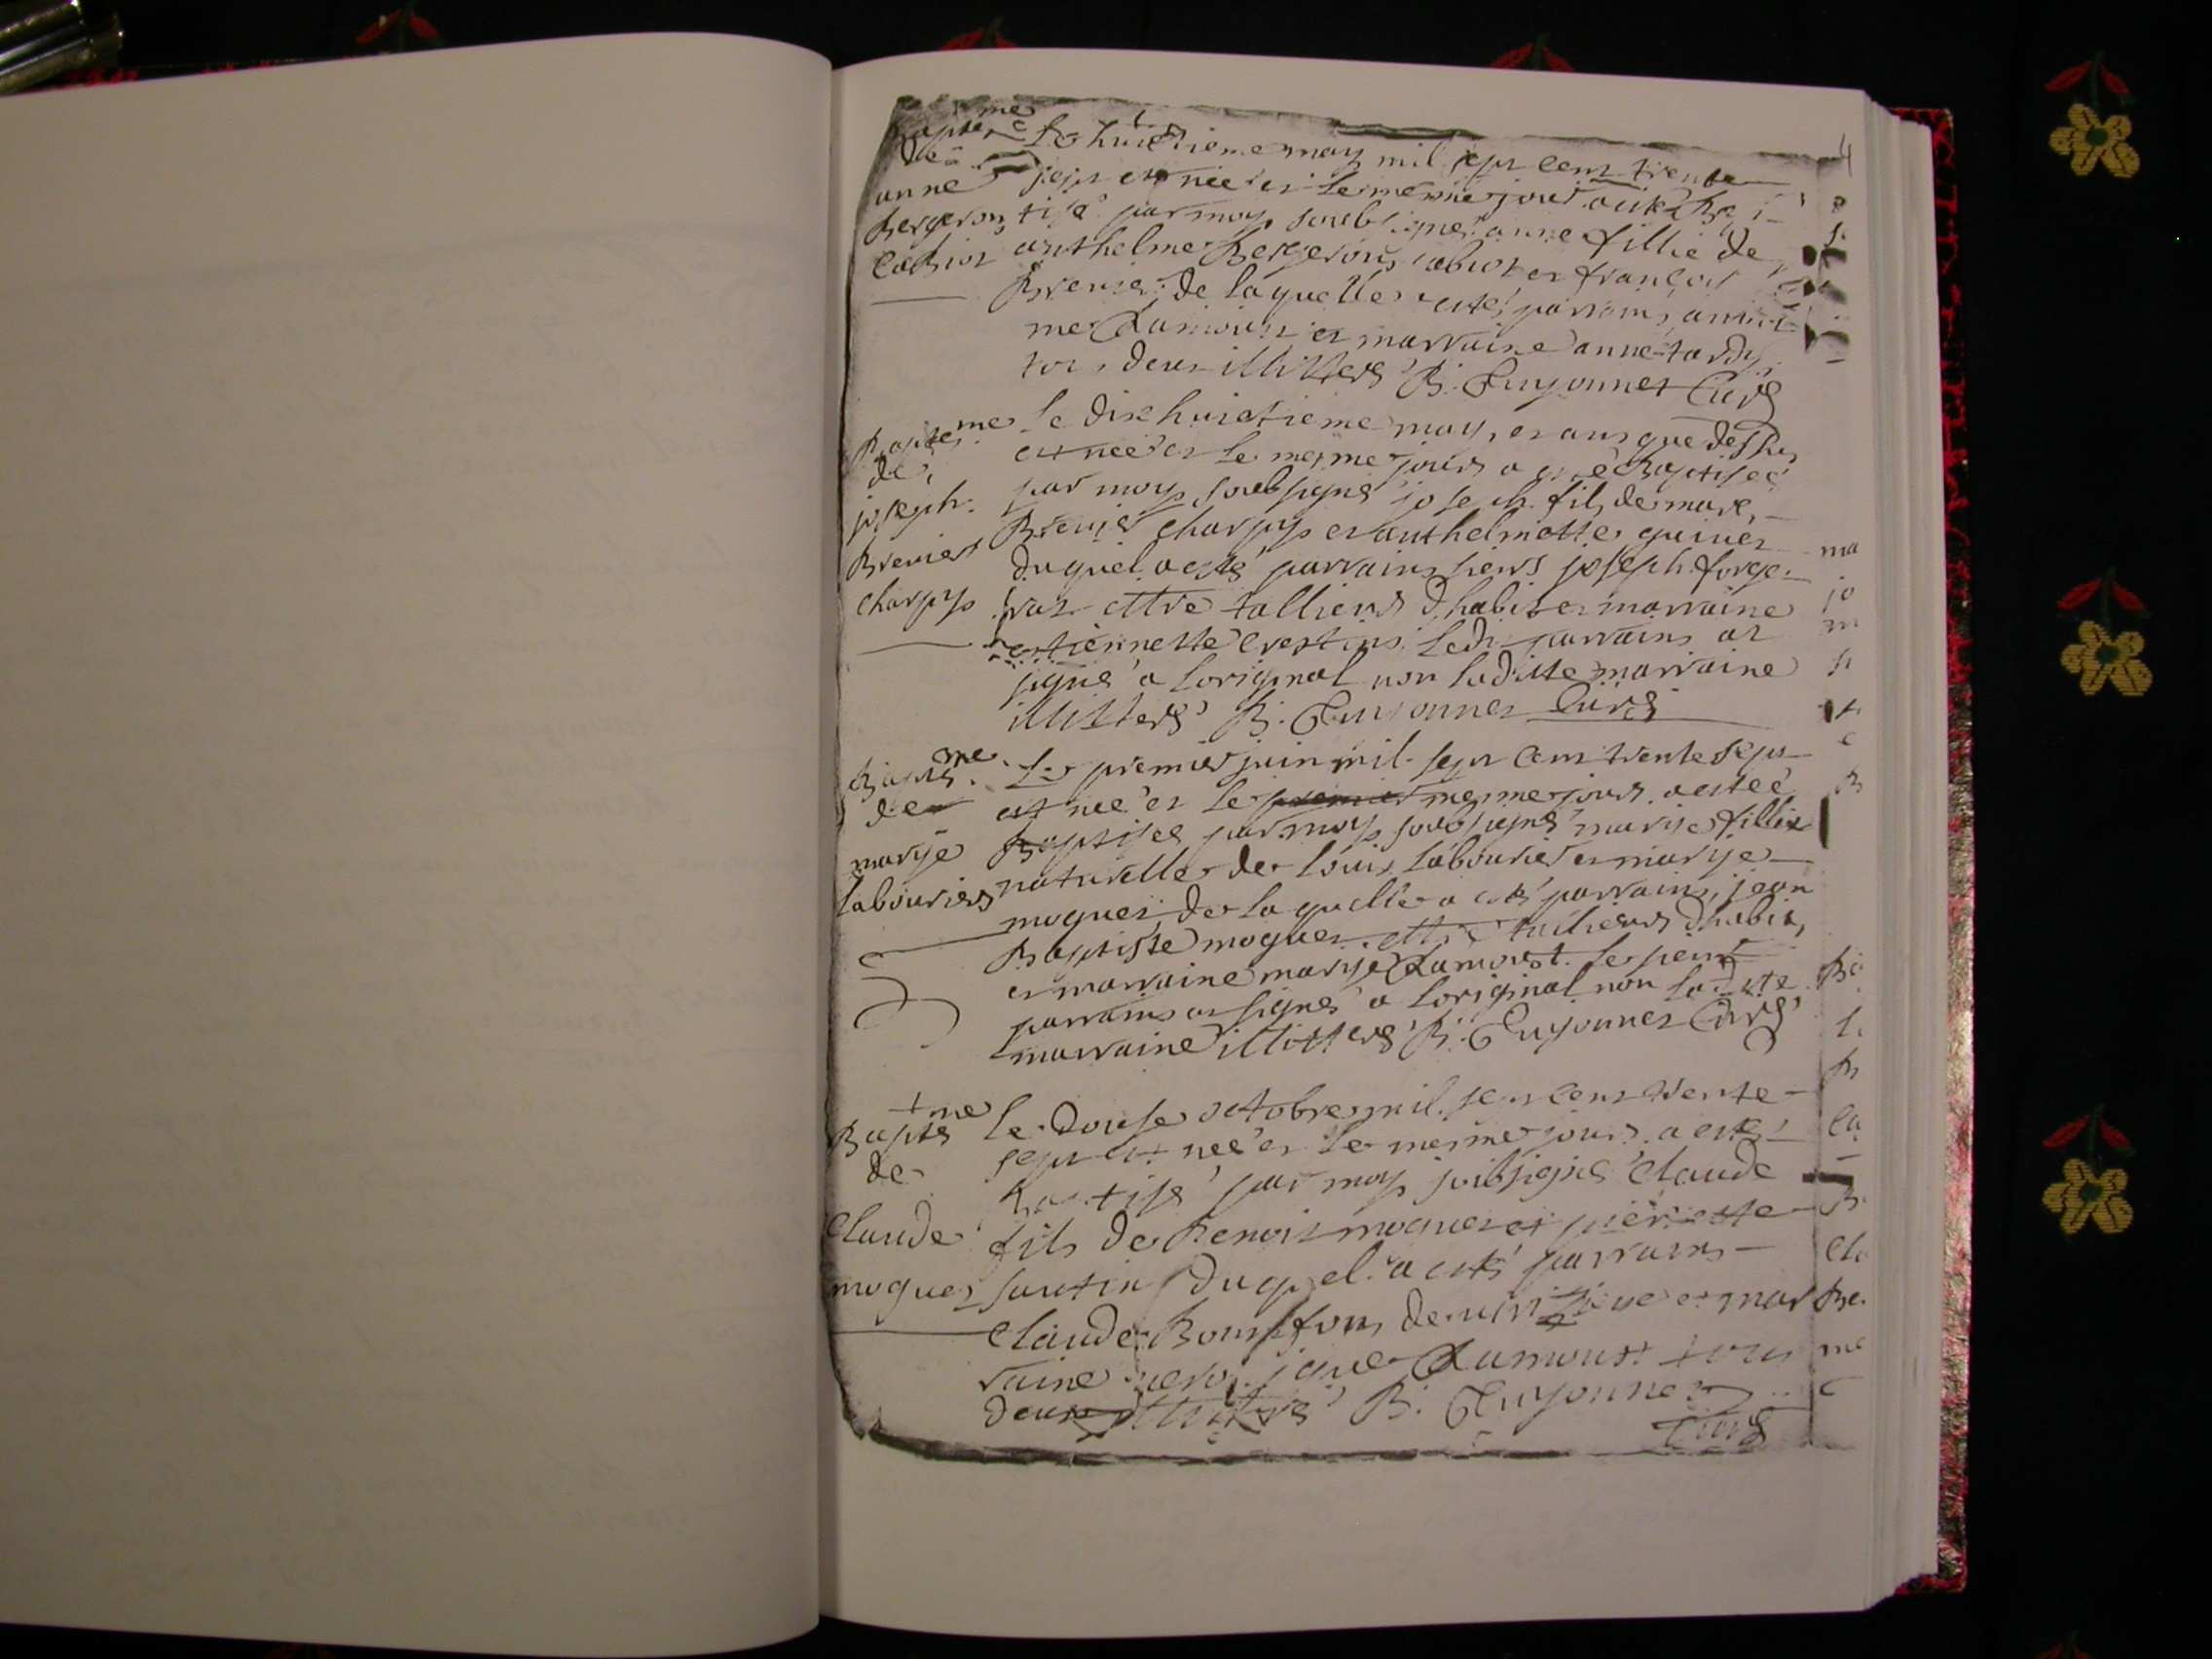 Baptesme
de
anne
Bergeron
Cabiot
Le huictieme may mil sept cent trente
sept est née et le mesme jour a esté Bap
tisé par moy soubsigné anne fillie de
anthelme Bergeron Cabiot et françoise
Brenier de laquelle a esté parrain
me Lamouret et marraine anne tardy
tous deux illittéré B. Guyonnet Curé
Baptesme
de
joseph
Brenier
charpy
Le dixhuictieme may, et an que dessus
est née et le mesme jour a esté Baptiseé
par moy soubsigné joseph fils de marc
Brenier charpy et anthelmette guinet
duquel a esté parrain sieur joseph forge
rat ettre tallieur d'habit et marraine
estiennette crestin ledi parrain at
signé a loriginal non ladite marraine
illitteré B. Guyonnet Curé
Baptesme
de
marye
Labourier
Le premier juin mil sept cent trente sept
est née et le premier mesme jour a esteé
Baptisée par moy soubsigné marye fillie
naturelle de Louis Labourier et marye
moguet de laquelle a esté parrain, jean
Baptiste moguet ettre tallieur d'habit,
et marraine marye Lamouret. le
parrain at signé a loriginal non ladite
marraine illitteré B. Guyonnet Curé
Baptesme
de
Claude
moguet
Le douse octobre mil sept cent trente
sept est née et le mesme jour a esté
Baptisé par moy soubsigné Claude
fils de Benoit moguet et pierrette
sautin duquel a esté parrain
Claude et mar
raine Lamouret tous
deux illittéré B. Guyonnet
Curé